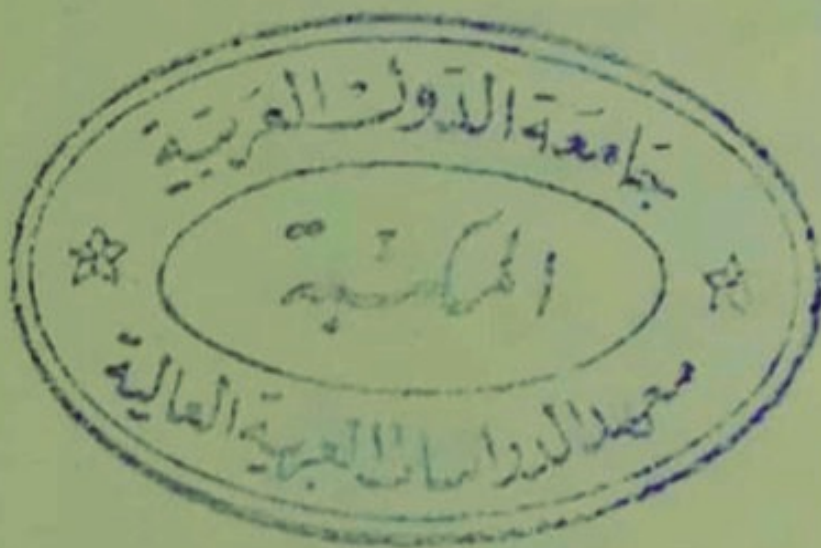 جامعة الدول العربية
المكتبة
معهد الدراسات العربية العالية